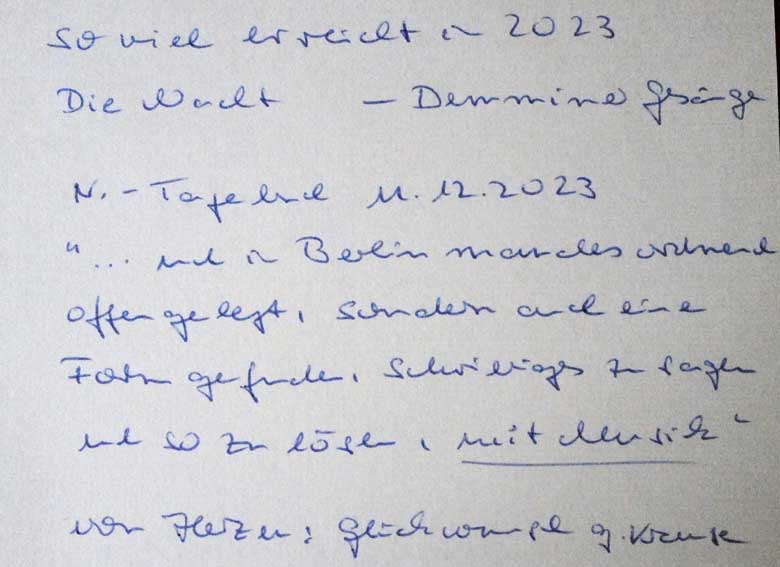 so viel erreicht in 2023
Die Nacht – Demminer Gesänge
N.-Tagebuch 11.12.2023
"... und in Berlin manches ordnend
offengelegt, sondern auch eine
Form gefunden, Schwieriges zu sagen
und so zu lösen, mit Musik"
von Herzen: Glückwunsch g. Krause